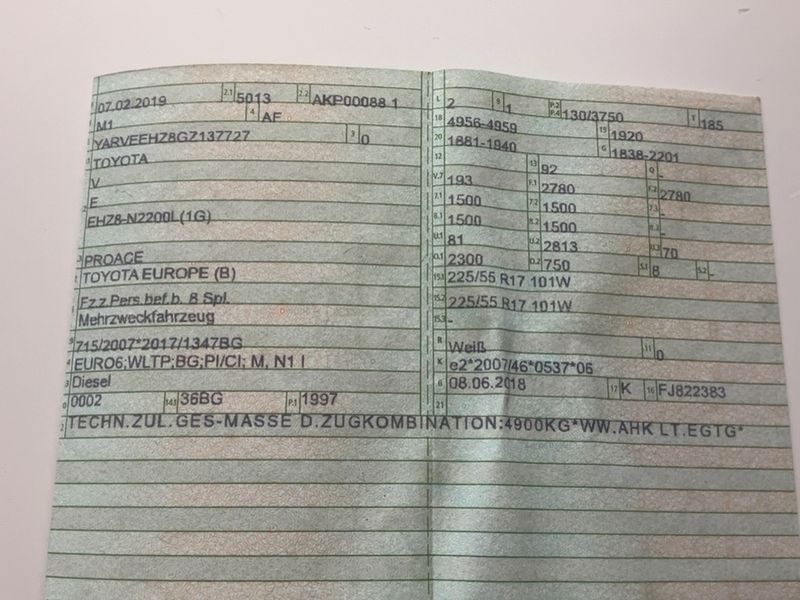 07.02.2019 2.1 5013 2.2 AKP00088 1
M1 4 AF
YARVEEHZ8GZ137727 3 0
TOYOTA
V
E
EHZ8-N2200L(1G)
PROACE
TOYOTA EUROPE (B)
Fz.z.Pers.bef.b. 8 Spl.
Mehrzweckfahrzeug
715/2007*2017/1347BG
EURO6;WLTP;BG;PI/CI; M, N1 I
Diesel
0002 14.1 36BG P.1 1997
L 2 9 1 P.2 P.4 130/3750 T 185
18 4956-4959 19 1920
20 1881-1940 G 1838-2201
12 13 92 Q -
V.7 193 F.1 2780 F.2 2780
7.1 1500 7.2 1500 7.3 -
8.1 1500 8.2 1500 8.3 -
U.1 81 U.2 2813 U.3 70
O.1 2300 O.2 750 S.1 8 S.2 -
15.1 225/55 R17 101W
15.2 225/55 R17 101W
15.3 -
R Weiß 11 0
K e2*2007/46*0537*06
6 08.06.2018 17 K 16 FJ822383
21
TECHN.ZUL.GES-MASSE D.ZUGKOMBINATION:4900KG*WW.AHK LT.EGTG*